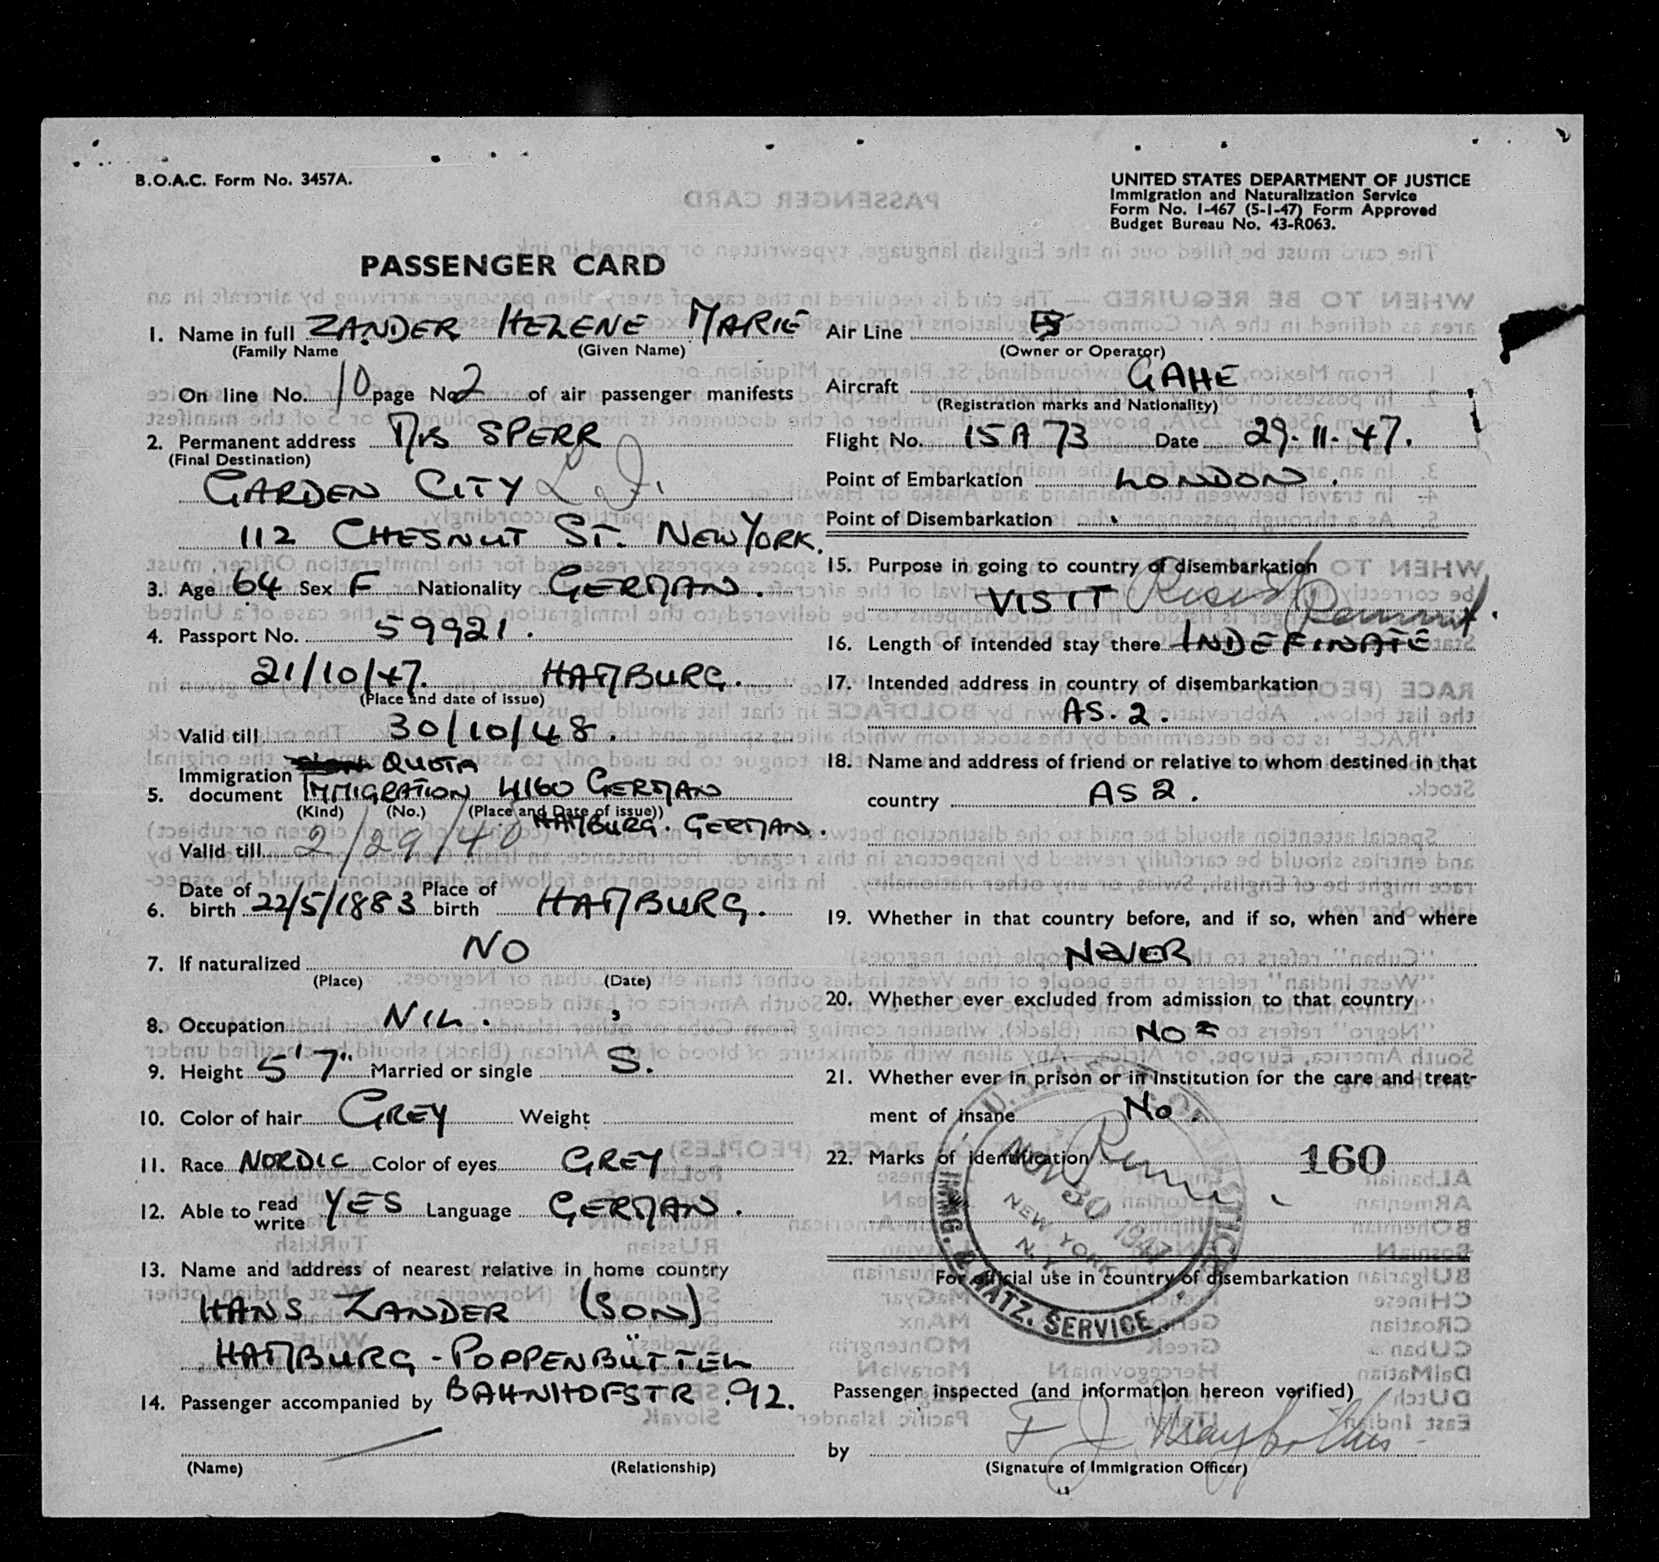 B.O.A.C. Form No. 3457A.
UNITED STATES DEPARTMENT OF JUSTICE
Immigration and Naturalization Service
Form No. I-467 (5-1-47) Form Approved
Budget Bureau No. 43-R063.
PASSENGER CARD
1. Name in full ZANDER HELENE MARIE
(Family Name (Given Name)
On line No. 10 page No 2 of air passenger manifests
2. Permanent address Mrs SPERR
(Final Destination)
GARDEN CITY L.I.
112 CHESNUT ST. NEW YORK.
3. Age 64 Sex F Nationality GERMAN.
4. Passport No. 59921.
21/10/47. HAMBURG.
(Place and date of issue)
Valid till 30/10/48.
QUOTA
5. Immigration document IMMIGRATION 4160 GERMAN
(Kind) (No.) (Place and Date of issue))
HAMBURG. GERMAN.
Valid till 2/29/48
6. Date of birth 22/5/1883 Place of birth HAMBURG.
7. If naturalized NO
(Place) (Date)
8. Occupation NIL.
9. Height 5' 7" Married or single S.
10. Color of hair GREY Weight
11. Race NORDIC Color of eyes GREY
12. Able to read write YES Language GERMAN.
13. Name and address of nearest relative in home country
HANS ZANDER (SON)
HAMBURG - POPPENBÜTTEL
BAHNHOFSTR. 92.
14. Passenger accompanied by
(Name) (Relationship)
Air Line
(Owner or Operator)
Aircraft GAHE
(Registration marks and Nationality)
Flight No. 15A 73 Date 29.11.47.
Point of Embarkation LONDON.
Point of Disembarkation
15. Purpose in going to country of disembarkation
VISIT Reside Permnt.
16. Length of intended stay there INDEFINATE
17. Intended address in country of disembarkation
AS. 2.
18. Name and address of friend or relative to whom destined in that
country AS 2.
19. Whether in that country before, and if so, when and where
NEVER
20. Whether ever excluded from admission to that country
NO
21. Whether ever in prison or in institution for the care and treat-
ment of insane No.
22. Marks of identification 160
NOV 30 1947
NEW YORK
N.Y.
IMMG. & NATZ. SERVICE
For official use in country of disembarkation
Passenger inspected (and information hereon verified)
by
(Signature of Immigration Officer)